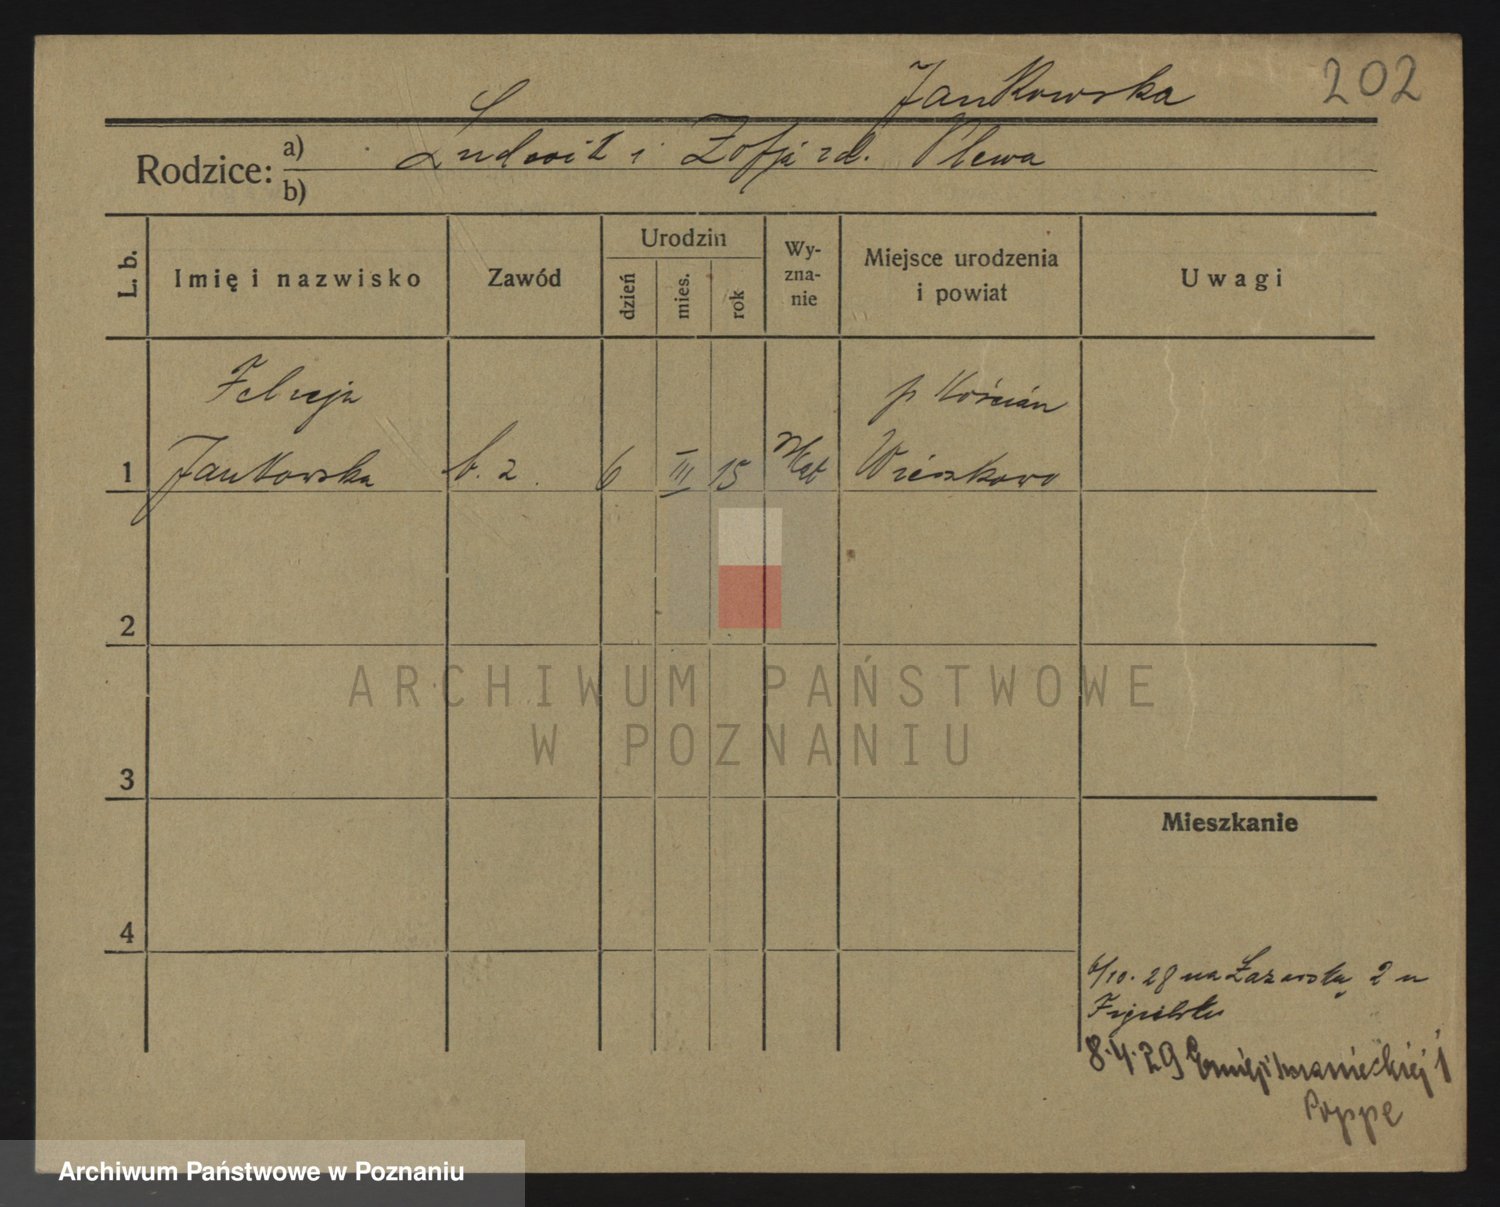 Jankowska 202
Rodzice: a) Ludwik i Zofja zd. Plewa
b)
L. b.
Imię i nazwisko
Zawód
Urodzin
dzień
mies.
rok
Wy-
zna-
nie
Miejsce urodzenia
i powiat
Uwagi
Felicja p Kościan
1 Jankowska b. z. 6 III 15 Kat Wieszkowo
2
3
4
Mieszkanie
6/10. 28 na Łazarską 2 u
8.4.29 1
Poppe
ARCHIWUM PAŃSTWOWE
W POZNANIU
Archiwum Państwowe w Poznaniu